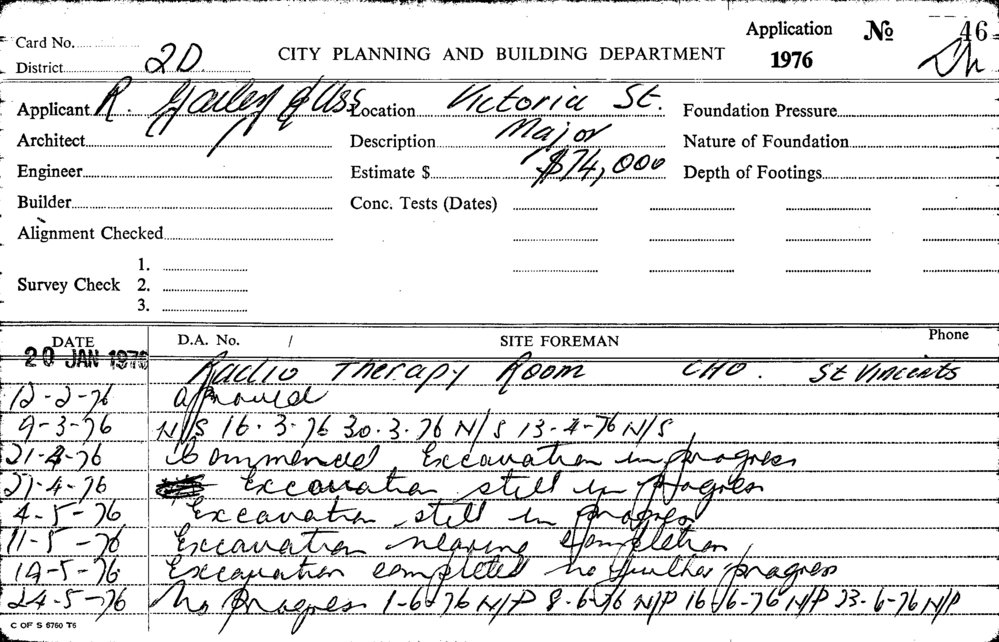 Card No.
District 2D
CITY PLANNING AND BUILDING DEPARTMENT
Application № 46
1976
Applicant R. Gailey & Ass Location Victoria St. Foundation Pressure
Architect Description Major Nature of Foundation
Engineer Estimate $ $74,000 Depth of Footings
Builder Conc. Tests (Dates)
Alignment Checked
1.
Survey Check 2.
3.
DATE D.A. No. / SITE FOREMAN Phone
20 JAN 1976 Radio Therapy Room CHO. St Vincents
12-2-76 approved
9-3-76 N/S 16.3.76 30.3.76 N/S 13-4-76 N/S
21-4-76 Commenced Excavation in progress
27-4-76 Excavation still in progress
4-5-76 Excavation still in progress
11-5-76 Excavation nearing completion
19-5-76 Excavation completed no further progress
24-5-76 No progress 1-6-76 N/P 8-6-76 N/P 16-6-76 N/P 23-6-76 N/P
C OF S 6760 T6